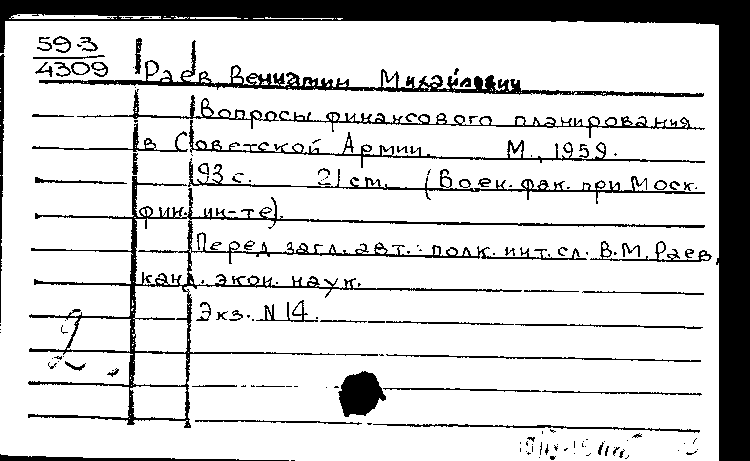 59-3
4309
Раев, Вениамин Михайлович
Вопросы финансового планирования
в Советской Армии. М., 1959.
93 с. 21 ст. (Воен. фак. при Моск.
фин. ин-те).
Перед загл. авт.: полк. инт. сл. В.М. Раев,
канд. экон. наук.
Экз. N 14.
2.